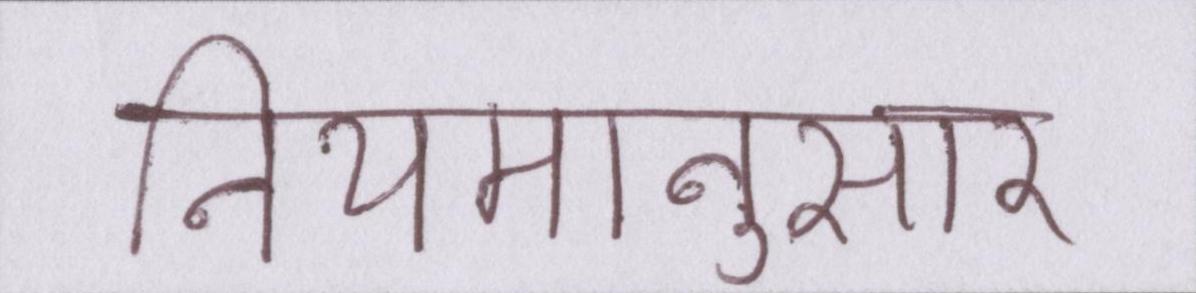 नियमानुसार